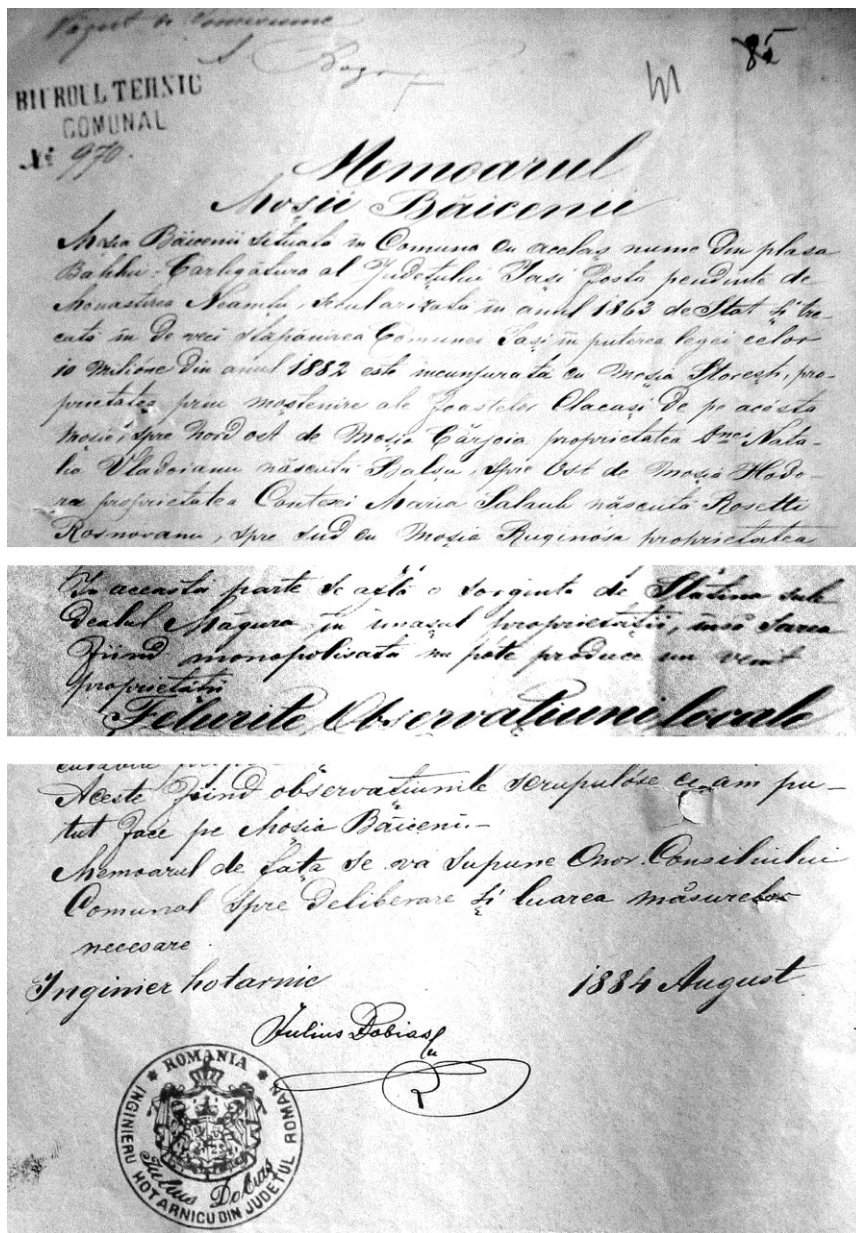 Raport de Comisiune
85
BIUROUL TEHNIC
COMUNAL
No 970.
Memoarul
Moșii Băicenii
Moșia Băicenii situată în Comuna cu acelaș nume din plasa
Bahlui-Carligătura al Județului Iași fosta pendinte de
Monastirea Neamțu, secularizată în anul 1863 de Stat și tre-
cută în de veci stăpânirea Comunei Iași în puterea legei celor
10 Milióne din anul 1882 este incunjurată cu moșia Storesti, pro-
prietatea prin moștenire ale foastelor Clacași de pe acésta
moșie, spre Nord ost de moșia Cârjoia proprietatea Dnei Nata-
lia Vladoianu născută Balșu, spre Ost de moșia Hodo-
ra proprietatea Contesei Maria Salaul născută Rosetti
Rosnovanu, spre Sud cu moșia Ruginósa proprietatea
In această parte se află o sorginte de Slatina sub
Dealul Măgura în imașul proprietății, însă Sarea
fiind monopolisată nu póte produce un venit
proprietatii
Felurite Observațiuni locale
Aceste fiind observațiunile scrupulóse ce am pu-
tut face pe Moșia Băiceni.-
Memoarul de față se va supune Onor. Consiliului
Comunal spre deliberare și luarea măsurelor
necesare.
Inginier hotarnic 1884 August
Iulius Dobias
* ROMANIA *
INGINIERU HOTARNICU DIN JUDETUL ROMAN
Iulius Dobias